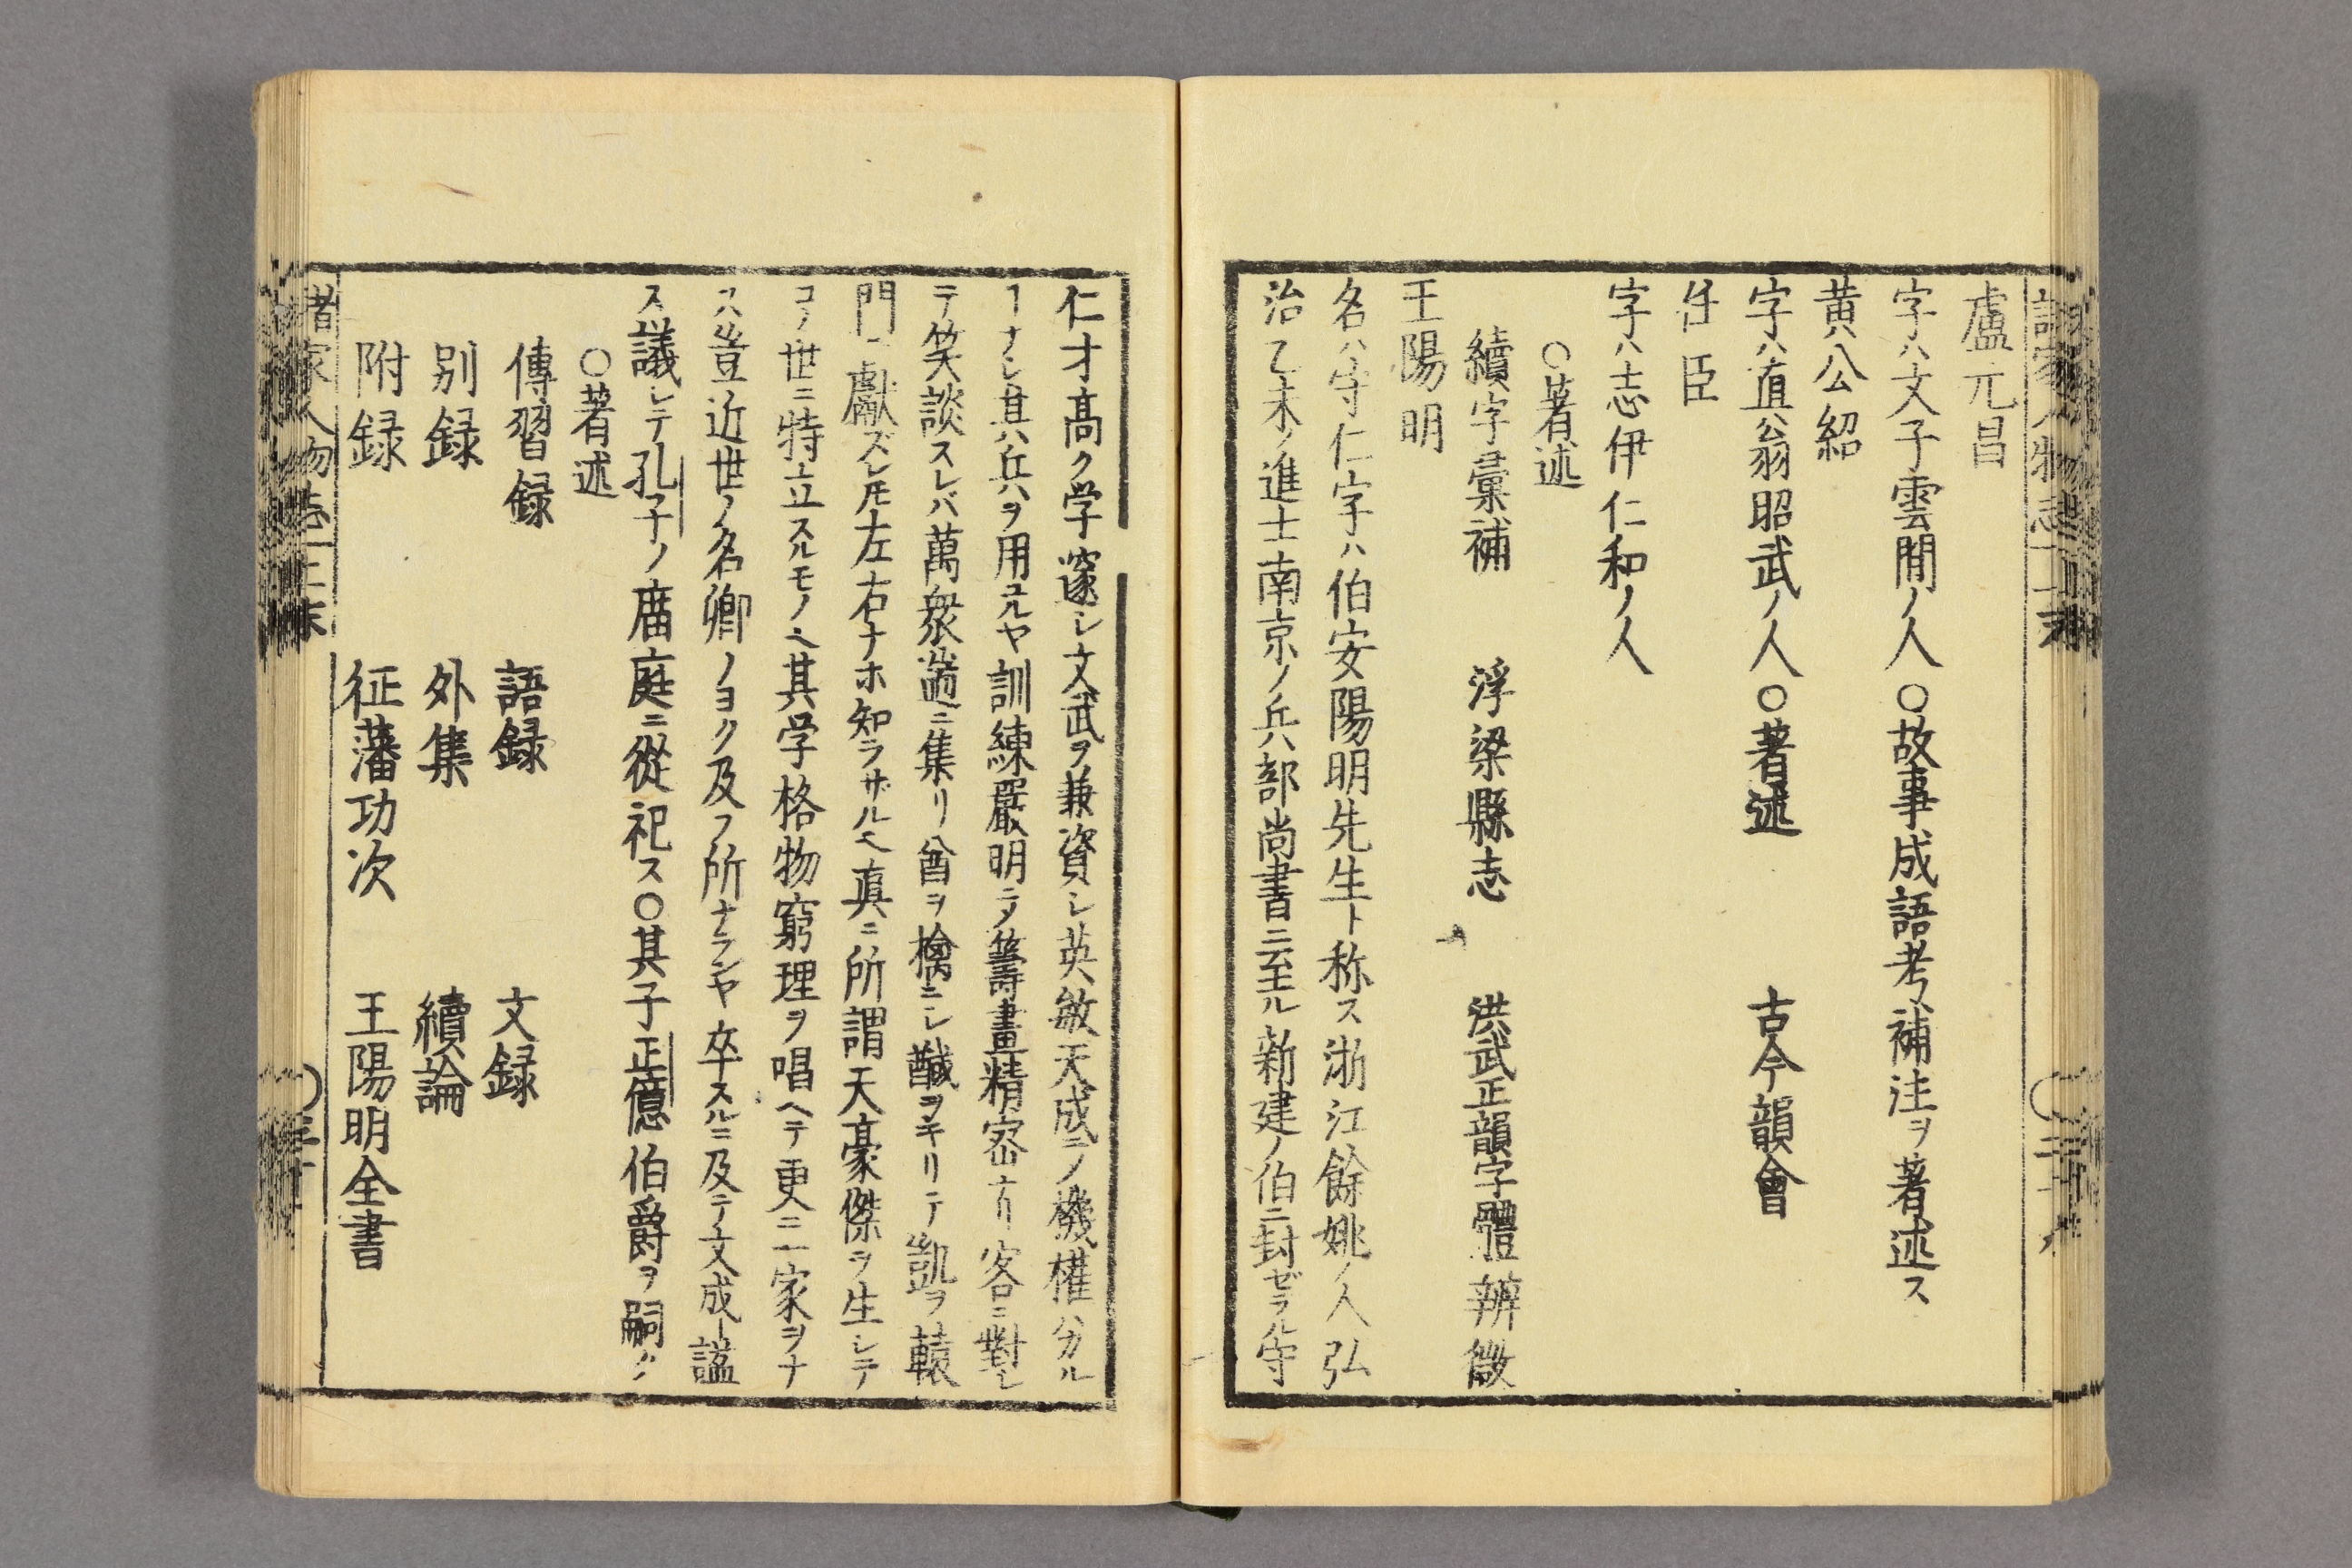 諸家人物志 上末
盧元昌
字ハ文子雲間ノ人○故事成語考ノ補注ヲ著述ス
黄公紹
字ハ直翁昭武ノ人○著述 古今韻會
任臣
字ハ志伊仁和ノ人
○著述
續字彙補 浮梁縣志 洪武正韻字體辨微
王陽明
名ハ守仁字ハ伯安陽明先生ト称ス浙江餘姚ノ人弘
治乙未ノ進士南京ノ兵部尚書ニ至ル新建ノ伯ニ封ゼラル守
仁才高ク学邃シ文武ヲ兼資シ英敏天成ニノ機権ハカル
ヿナシ其ハ兵ヲ用ユルヤ訓練嚴明ニノ籌畫精密ナリ客ニ對シ
テ笑談スレバ萬衆遄ニ集リ酋ヲ檎ニシ馘ヲキリテ凱ヲ轅
門ニ獻ズレ𪜈左右ナホ知ラザル也真ニ所謂天豪傑ヲ生シテ
コノ世ニ特立スルモノ也其学格物窮理ヲ唱ヘテ更ニ一家ヲナ
ス豈近世ノ名卿ノヨク及フ所ナランヤ卒スルニ及テ文成ト謚
ス議シテ孔子ノ庿庭ニ從祀ス○其子正億伯爵ヲ嗣ク
○著述
傳習録 語録 文録
別録 外集 續論
附録 征藩功次 王陽明全書
諸家人物志 上末 ○三十